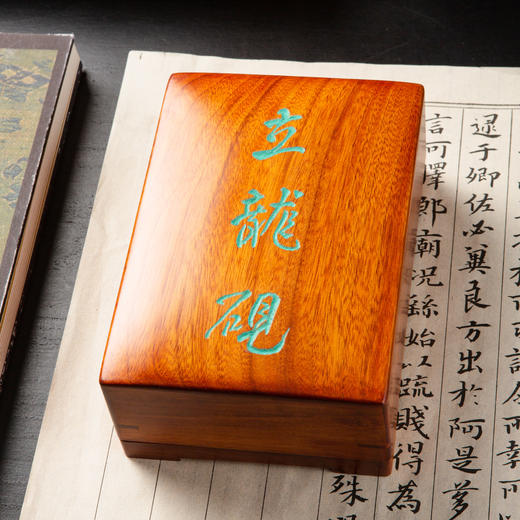 立龍硯
逮于卿佐必冀良方出於阿是芻
言可擇郎廟況繇始以疏賤得為
殊